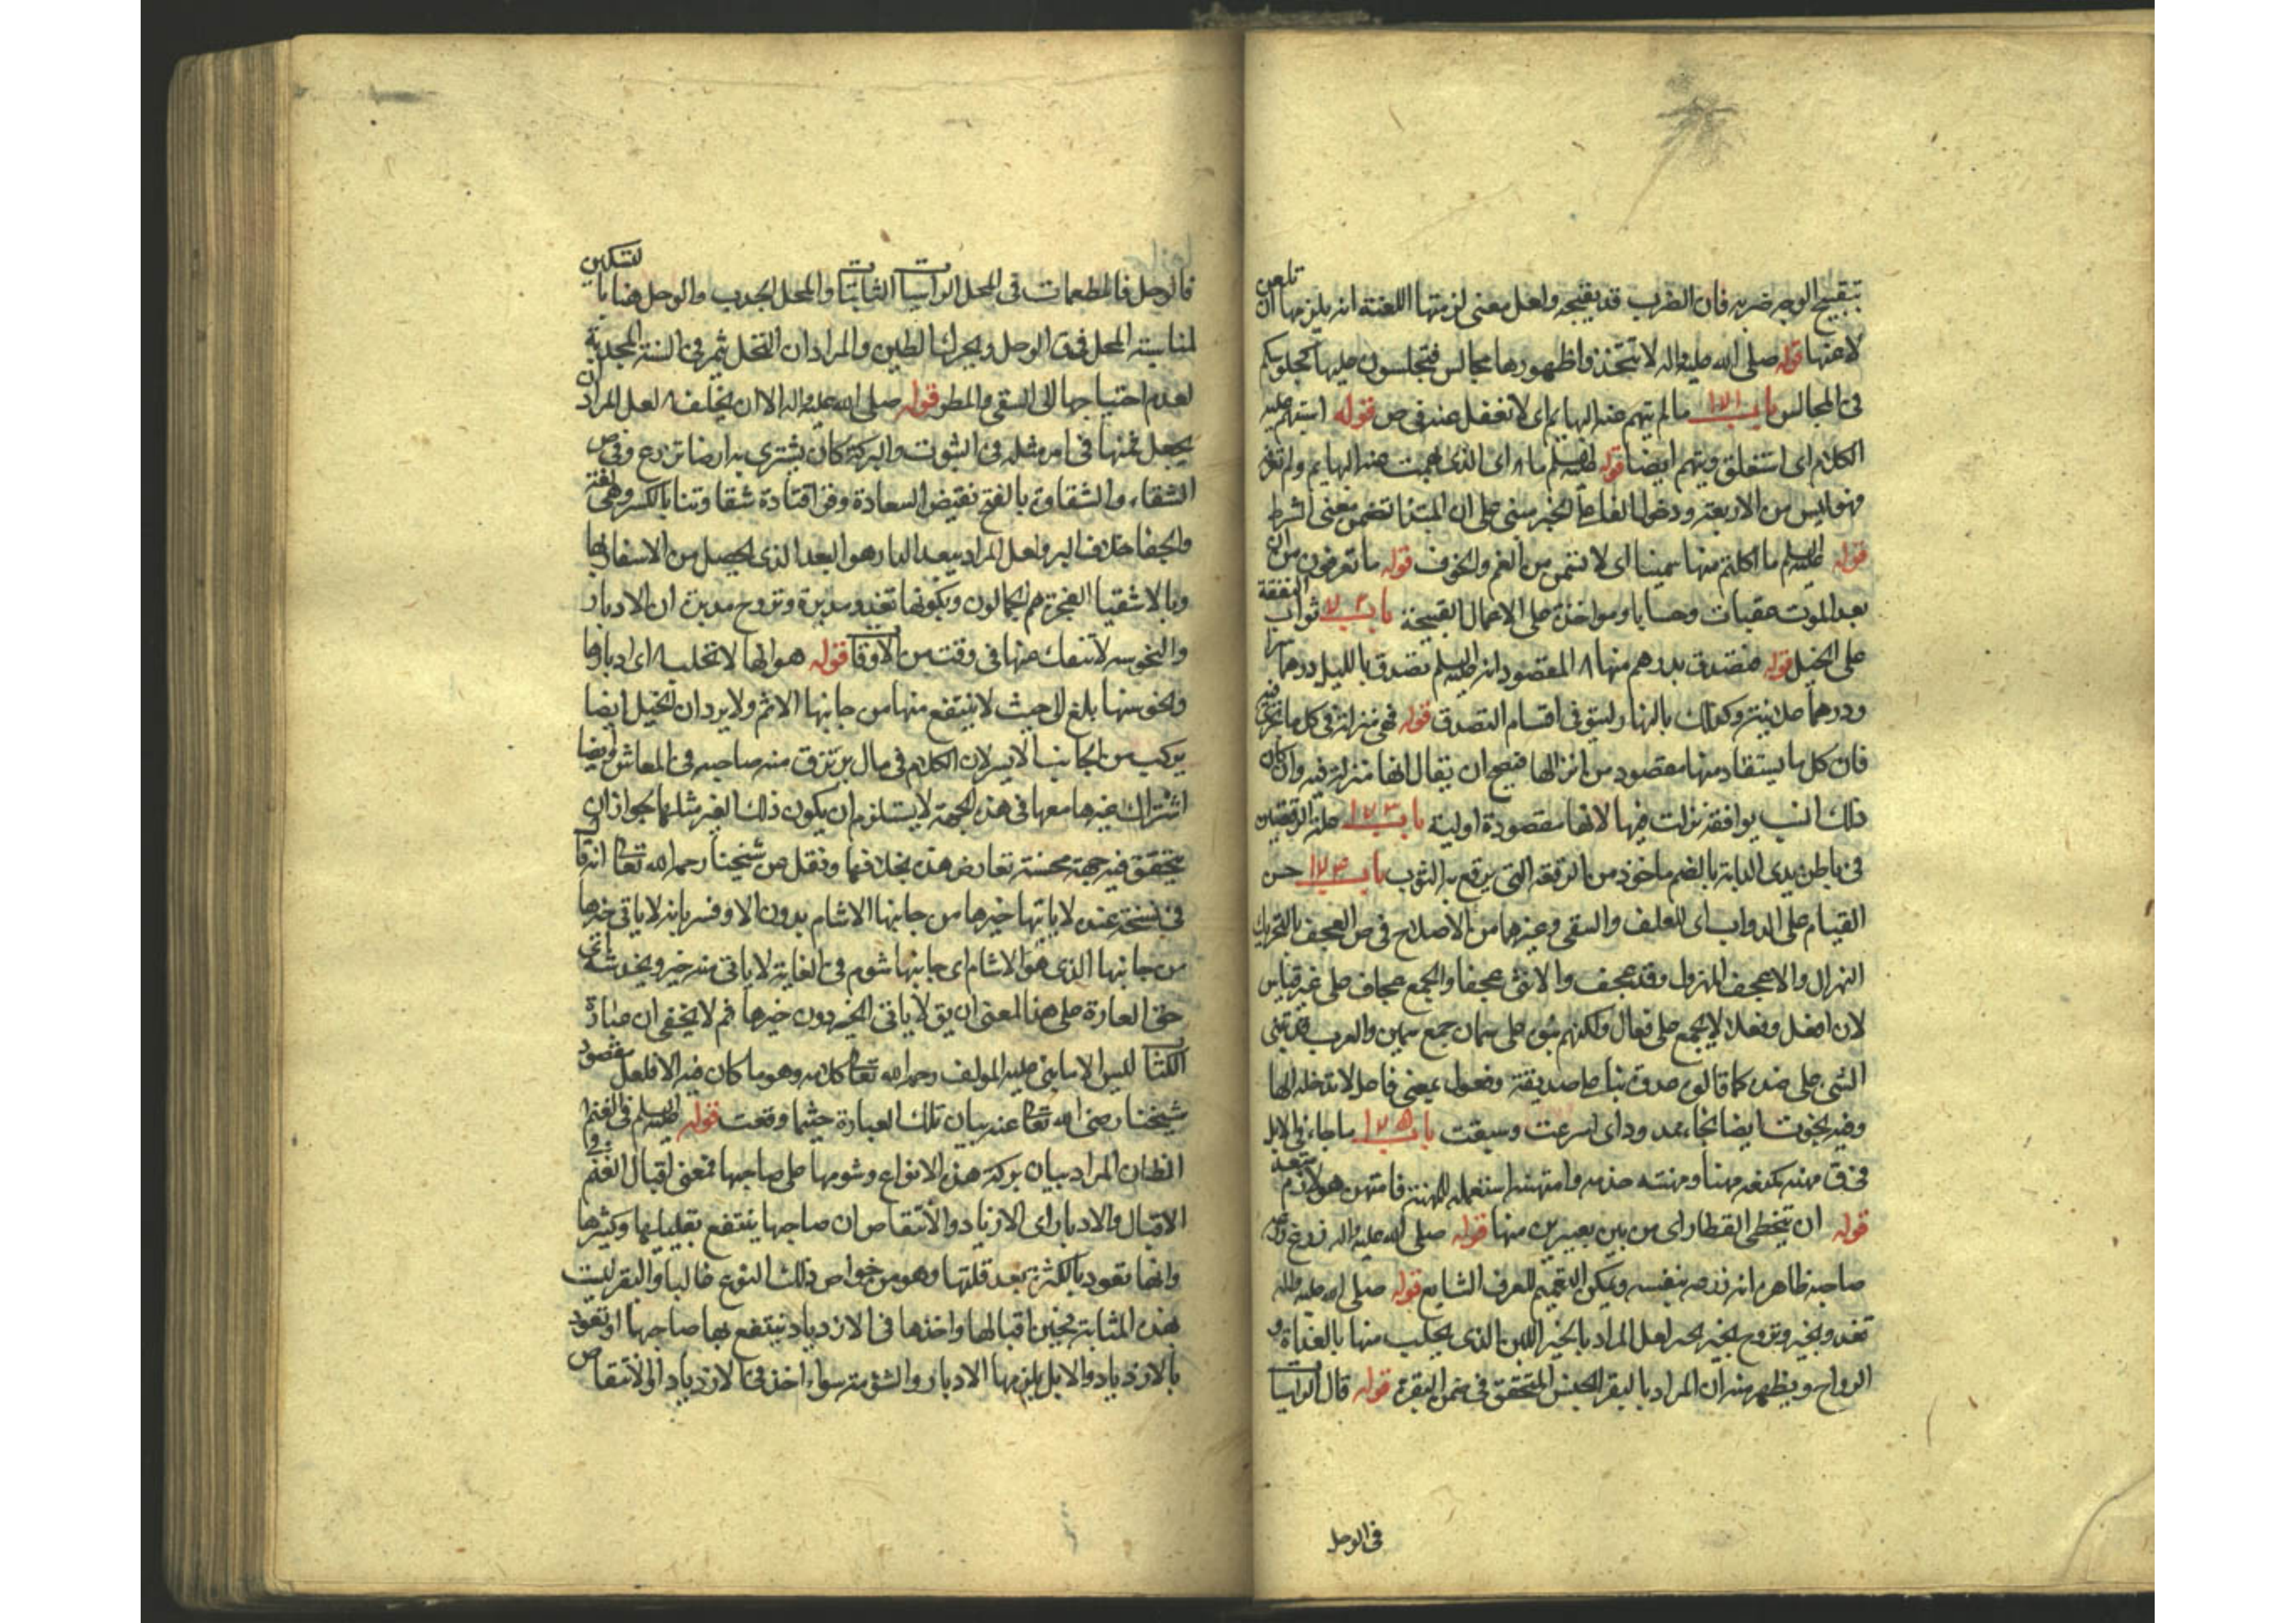 بتقبيح الوجه ضربه فان الضرب قد يقبحه ولعل معنى لزمتها اللعنة انه يلزمها ان تلعن
لاعنها قوله صلى الله عليه واله لا تتخذوا ظهورها مجالس فتجلسون عليها كجلوسكم
في المجالس باب ١٧١ ما لم يبهم عنه البهايم اي لا تغفل عنه في ص قوله استبهم عليه
الكلام اي استغلق ويبهم ايضا قوله عليه السلم ما اي الذي ابهمت عنه البهايم ولم تعرفه
فهو ليس من الاربعة ودخول الفا على الخبر مبني على ان المبتدا تضمن معنى الشرط
قوله عليه السلم ما اكلتم منها سمينا اي لا تسمن من الغم والخوف قوله ما تعرفون من ان
بعد الموت عقبات وحسابا ومواخذة على الاعمال القبيحة باب ثواب النفقة
على الخيل قوله فتصدق بدرهم منها المقصود انه عليه السلم تصدق بالليل درهما سرا
ودرهما علانية وكذلك بالنهار ليستوفي اقسام التصدق قوله فهي منزلة في كل ما نزلت فيه
فان كل ما يستفاد منها مقصود من انزالها فيصح ان يقال انها منزلة فيه وان كان
ذلك السبب يوافقه نزلت فيها لانها مقصودة اولية باب ١٧٣ علة الرقعتين
في باطن يدي الدابة بالضم ماخوذ من الرقعة التي يرقع به الثوب باب ١٧٤ حسن
القيام على الدواب اي للعلف والسقي وغيرهما من الاصلاح في ص العجف بالتحريك
الهزال والاعجف المهزول وقد عجف والانثى عجفا والجمع عجاف على غير قياس
لان افعل وفعلا لا يجمع على فعال ولكنهم بنوه على سمان جمع سمين والعرب قد تبني
الشي على ضده كما قالوا عدوة بناء على صديقة وفعول بمعنى فاعل لا تدخله الها
وفيه نجوت ايضا نجاء ممدود اي اسرعت وسبقت باب ١٧٥ ما جاء في الابل
في ق مهنه كمنعه مهنا ومهنته خدمه وامتهنه استعمله للمهنة فامتهن هو لازم متعد
قوله ان يتخطى القطار اي من بين بعيرين منها قوله صلى الله عليه واله زرع زرعه
صاحبه ظاهره انه زرعه بنفسه ويمكن التعميم للعرف الشايع قوله صلى الله عليه واله
تغدو بخير وتروح بخير لعل المراد بالخير اللبن الذي يحلب منها بالغداة و
الرواح ويظهر منه ان المراد بالبقر الجنس المتحقق في ضمن البقرة قوله قال الراسيات
في الوحل
في الوحل فالمطعمات في المحل الراسيات الثابتات والمحل الجدب والوحل هنا بالتسكين
لمناسبة المحل في ق الوحل ويحرك الطين والمراد ان النخل تثمر في السنة المجدبة
لعدم احتياجها الى السقي والمطر قوله صلى الله عليه واله الا ان يخلف لعل المراد ان
يجعل ثمنها في امر مثله في الثبوت والبركة كان يشتري به ارضا تزرع وفي ص
الشقاء والشقاوة بالفتح نقيض السعادة وفي قتادة شقاوتنا بالكسر وهي لغة
والجفا خلاف البر ولعل المراد ببعد الدار هو البعد الذي يحصل من الاسفار بها
وبالاشقيا الفجرة هم الجمالون وبكونها تغدو مدبرة وتروح مدبرة ان الادبار
والنحوسة لا تنفك عنها في وقت من الاوقات قوله هو انها لا تحلب اي ادبارها
ونحوستها بلغ الى حيث لا ينتفع منها من جانبها الا اشم ولا يرد ان الخيل ايضا
يركب من الجانب الايسر لان الكلام في مال يرتزق منه صاحبه في المعاش وايضا
اشتراك غيرها معها في هذه الجهة لا يستلزم ان يكون ذلك الغير مثلها لجواز ان
يتحقق فيه جهة محسنة تعارض هذه بخلافها ونقل عن شيخنا رحمه الله تعالى انه قال
في نسخة عنده لا ياتيها خيرها من جانبها الاشام بدون الا وفسر بانه لا ياتي خيرها
من جانبها الذي هو الاشام اي جانبها شوم في الغاية لا ياتي منه خير ويخدشه ان
حق العبارة على هذا المعنى ان يق لا ياتي الخير دون خيرها ثم لا يخفى ان عبارة
الكتاب ليس الا ما بنى عليه المولف رحمه الله تعالى كلامه وهو ما كان فيه الا فلعل مقصود
شيخنا رضي الله تعالى عنه بيان تلك العبارة حيثما وقعت قوله عليه السلم في الغنم
الظان المراد بيان بركة هذه الانواع وشومها على صاحبها فمعنى اقبال الغنم في
الاقبال والادبار اي الازدياد والانتقاص ان صاحبها ينتفع بقليلها وكثيرها
وانها تعود بالكثرة بعد قلتها وهو من خواص ذلك النوع غالبا والبقر ليست
بهذه المثابة فحين اقبالها واخذها في الازدياد ينتفع بها صاحبها او تعود
بالازدياد والابل يلزمها الادبار والشؤمة سواء اخذ في الازدياد او الانتقاص